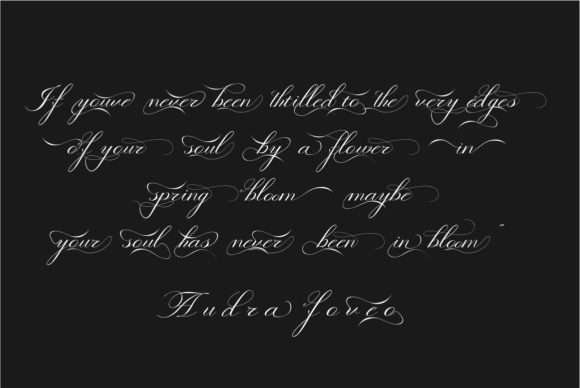 If youve never been thtilled to the very edges
of your soul by a flower in
spring bloom maybe
your soul has never been in bloom "
Audra foveo